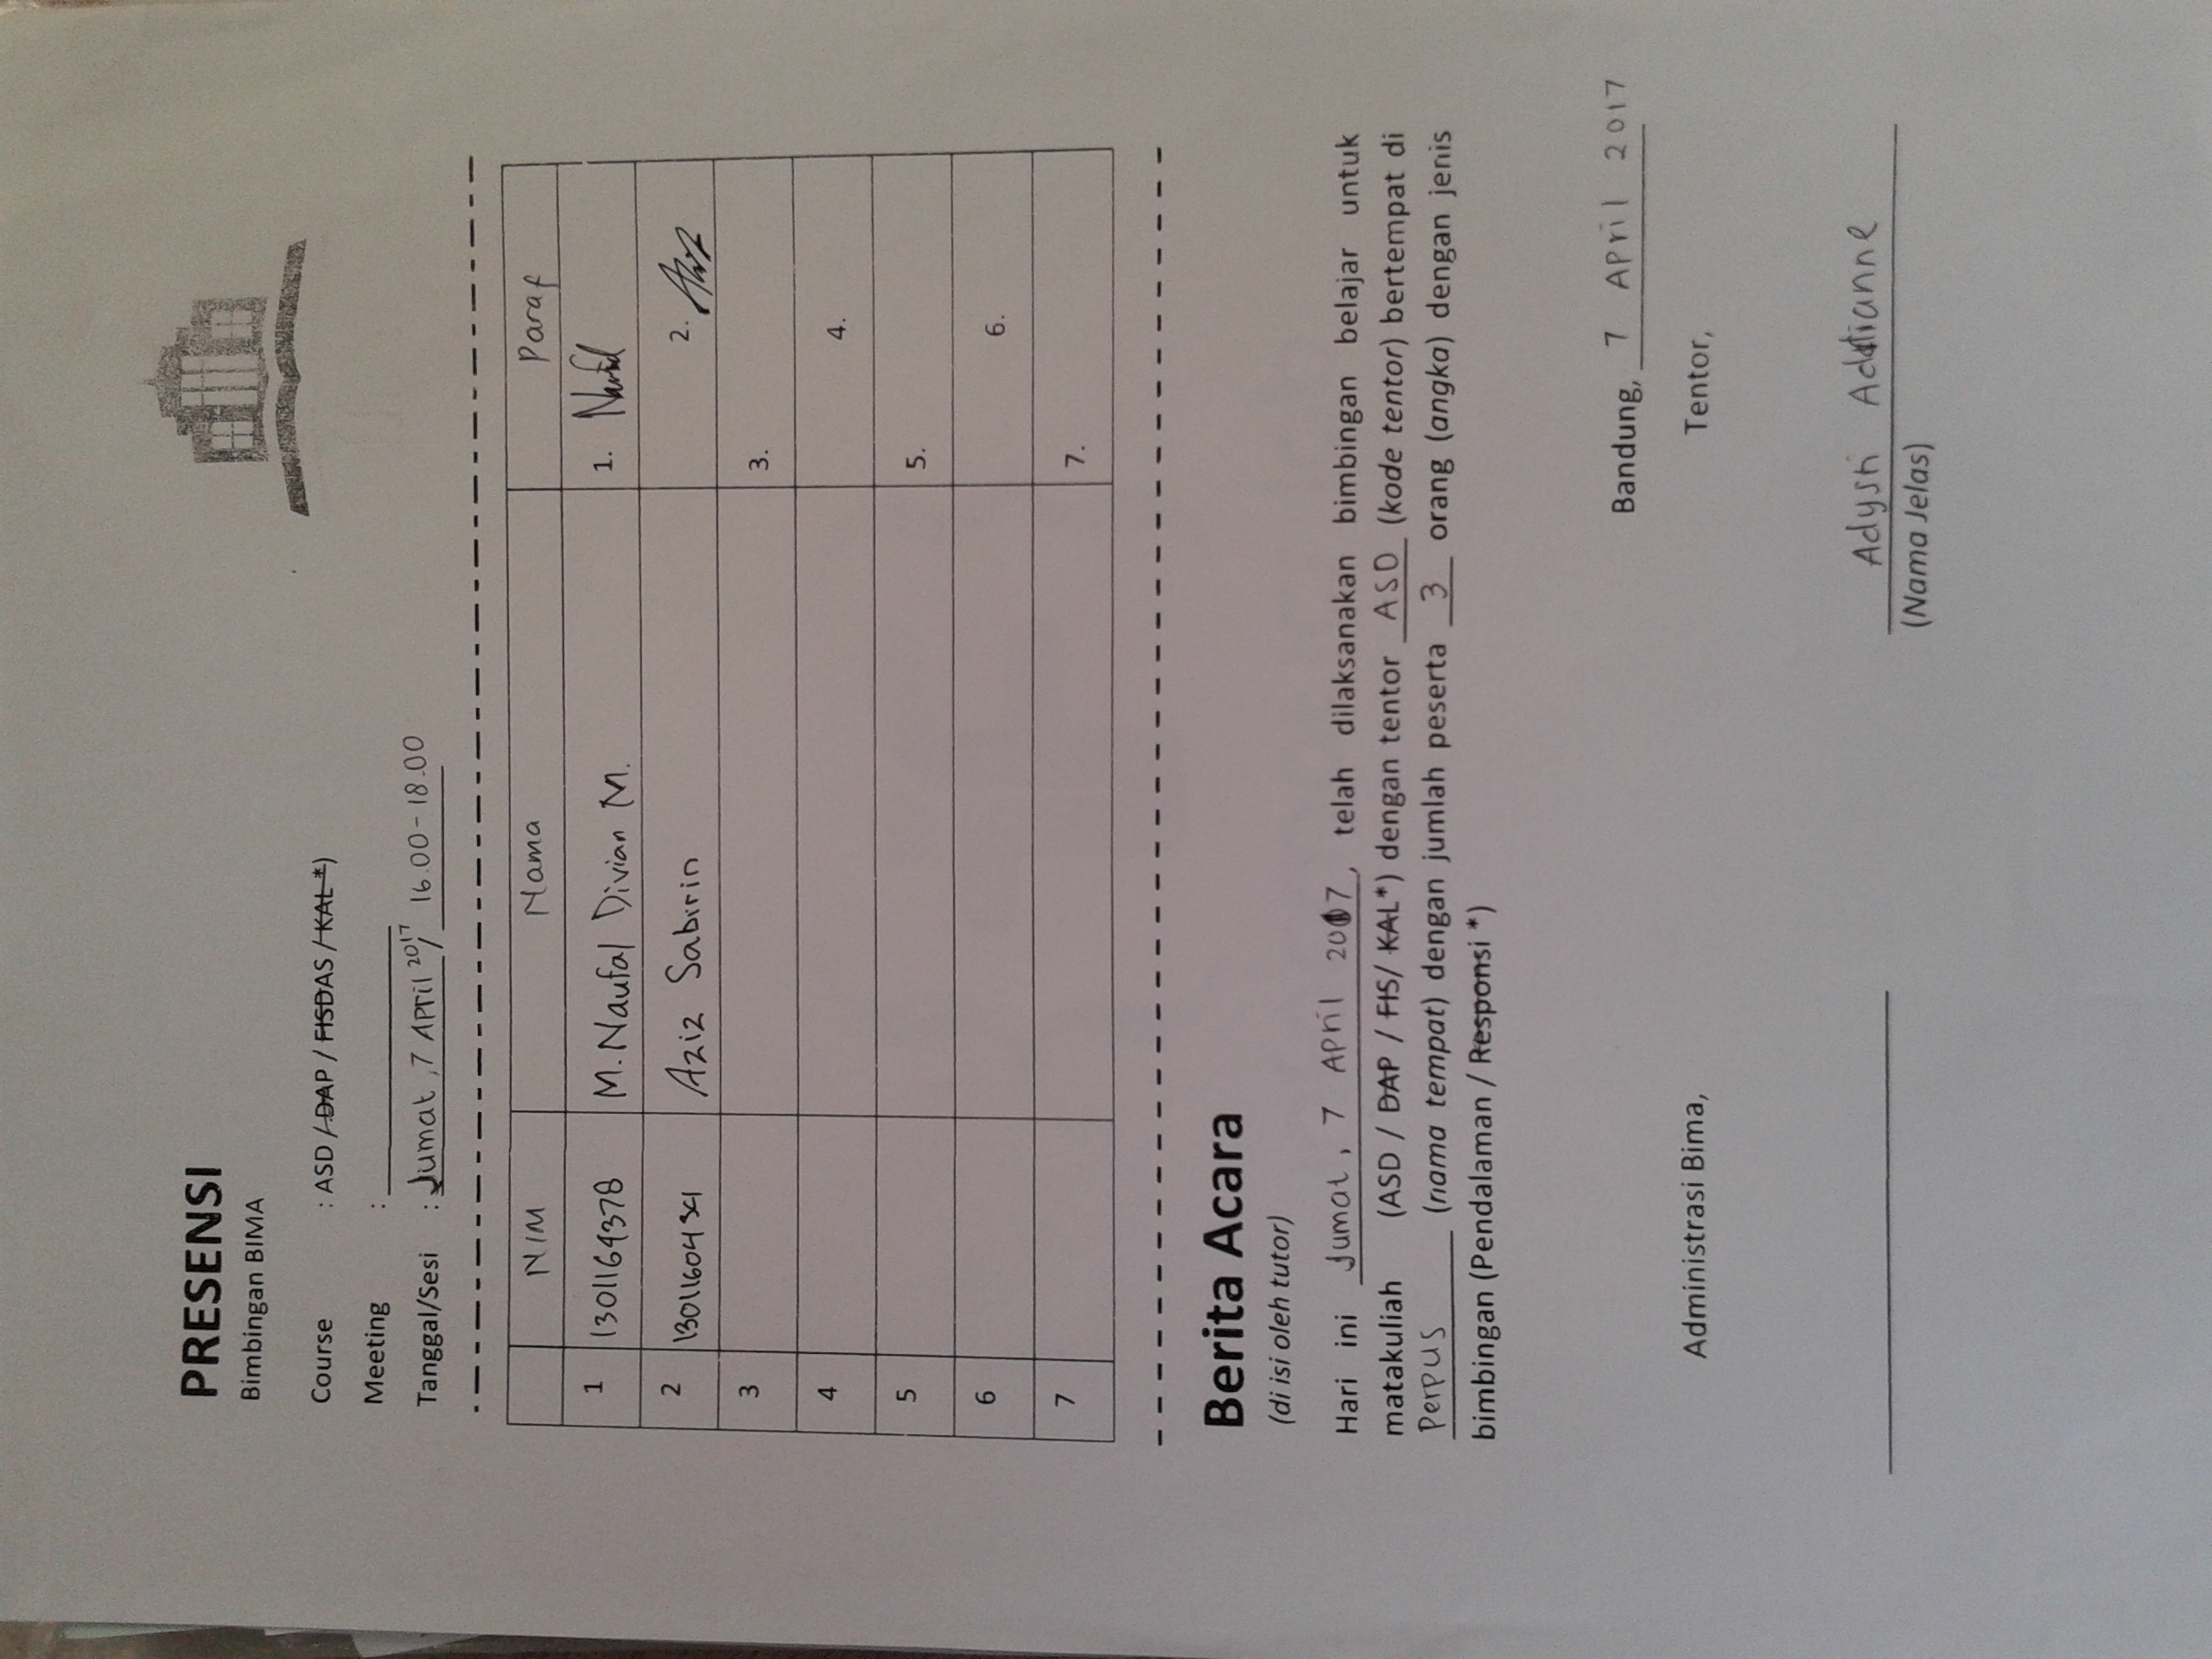 PRESENSI
Bimbingan BIMA
Course : ASD / DAP / FISDAS / KAL *)
Meeting :
Tanggal/Sesi : Jumat, 7 April 2017, 16.00 - 18.00
NIM Nama Paraf
1 1301164378 M. Naufal Divian M. 1. Naufal
2 Aziz Sabirin 2.
3 3.
4 4.
5 5.
6 6.
7 7.
Berita Acara
(di isi oleh tutor)
Hari ini Jumat, 7 April 2017, telah dilaksanakan bimbingan belajar untuk
matakuliah (ASD / DAP / FIS/ KAL*) dengan tentor ASD (kode tentor) bertempat di
Perpus (nama tempat) dengan jumlah peserta 3 orang (angka) dengan jenis
bimbingan (Pendalaman / Responsi *)
Bandung, 7 April 2017
Administrasi Bima, Tentor,
(Nama Jelas)